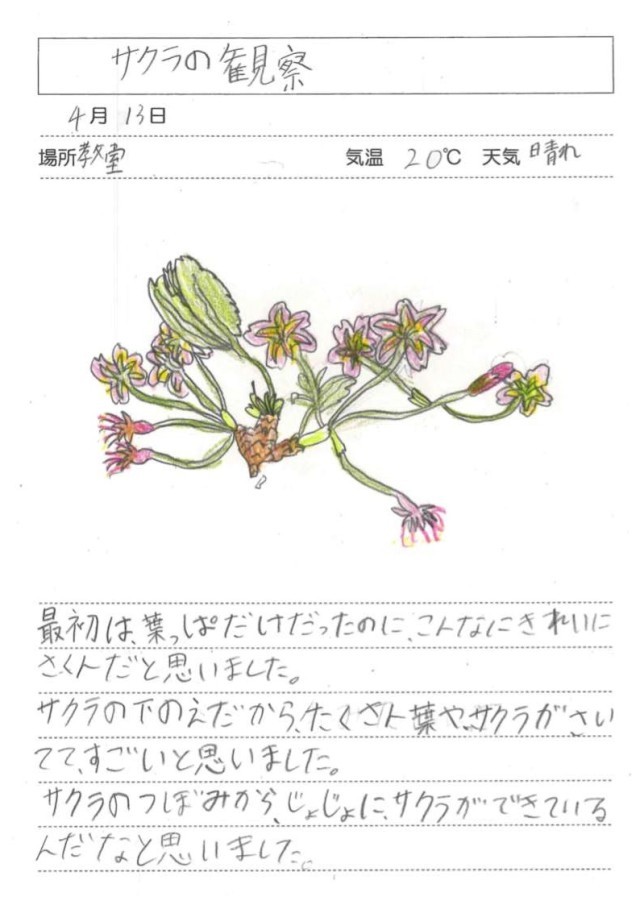 サクラの観察
4月 13日
場所 教室 気温 20℃ 天気 晴れ
最初は、葉っぱだけだったのに、こんなにきれいに
さくんだと思いました。
サクラの下のえだから、たくさん葉や、サクラがさい
てて、すごいと思いました。
サクラのつぼみから、じょじょに、サクラができている
んだなと思いました。